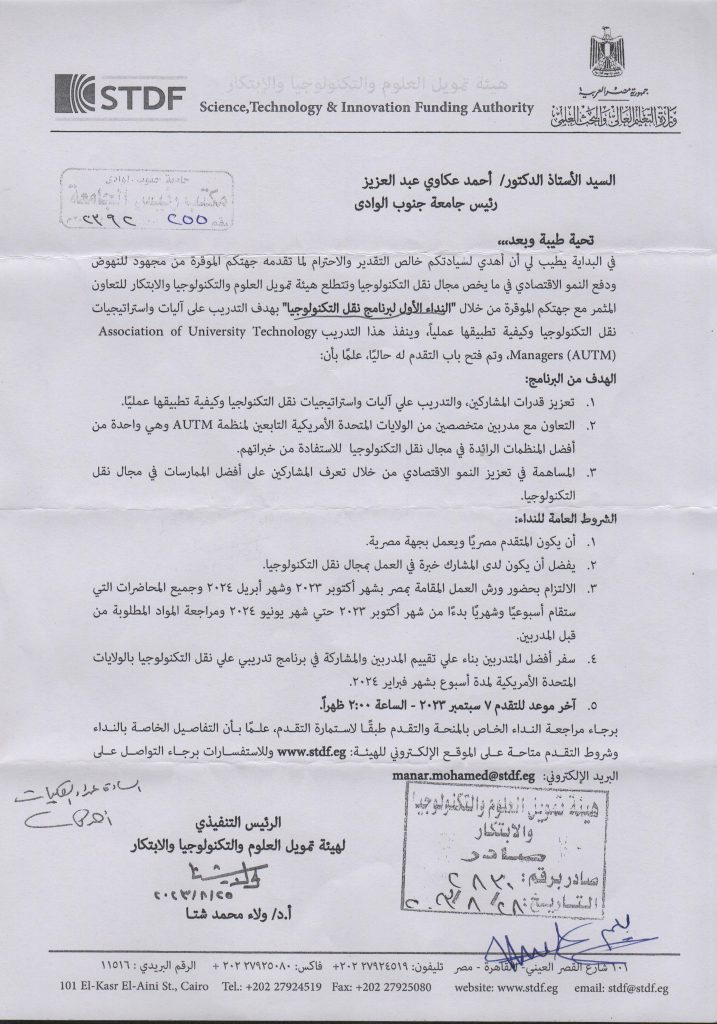 هيئة تمويل العلوم والتكنولوجيا والابتكار
STDF
Science,Technology & Innovation Funding Authority
جمهورية مصر العربية
وزارة التعليم العالي والبحث العلمي
جامعة جنوب الوادى
٢٣٩٢ ٢٥٥
السيد الأستاذ الدكتور/ أحمد عكاوي عبد العزيز
رئيس جامعة جنوب الوادى
تحية طيبة وبعد,,,
في البداية يطيب لي أن أهدي لسيادتكم خالص التقدير والاحترام لما تقدمه جهتكم الموقرة من مجهود للنهوض
ودفع النمو الاقتصادي في ما يخص مجال نقل التكنولوجيا وتتطلع هيئة تمويل العلوم والتكنولوجيا والابتكار للتعاون
المثمر مع جهتكم الموقرة من خلال "النداء الأول لبرنامج نقل التكنولوجيا" بهدف التدريب على آليات واستراتيجيات
نقل التكنولوجيا وكيفية تطبيقها عملياً، وينفذ هذا التدريب Association of University Technology
Managers (AUTM)، وتم فتح باب التقدم له حاليًا، علمًا بأن:
الهدف من البرنامج:
١. تعزيز قدرات المشاركين، والتدريب علي آليات واستراتيجيات نقل التكنولجيا وكيفية تطبيقها عمليًا.
٢. التعاون مع مدربين متخصصين من الولايات المتحدة الأمريكية التابعين لمنظمة AUTM وهي واحدة من
أفضل المنظمات الرائدة في مجال نقل التكنولوجيا للاستفادة من خبراتهم.
٣. المساهمة في تعزيز النمو الاقتصادي من خلال تعرف المشاركين على أفضل الممارسات في مجال نقل
التكنولوجيا.
الشروط العامة للنداء:
١. أن يكون المتقدم مصريًا ويعمل بجهة مصرية.
٢. يفضل أن يكون لدى المشارك خبرة في العمل بمجال نقل التكنولوجيا.
٣. الالتزام بحضور ورش العمل المقامة بمصر بشهر أكتوبر ٢٠٢٣ وشهر أبريل ٢٠٢٤ وجميع المحاضرات التي
ستقام أسبوعيًا وشهريًا بدءًا من شهر أكتوبر ٢٠٢٣ حتي شهر يونيو ٢٠٢٤ ومراجعة المواد المطلوبة من
قبل المدربين.
٤. سفر أفضل المتدربين بناء علي تقييم المدربين والمشاركة في برنامج تدريبي علي نقل التكنولوجيا بالولايات
المتحدة الأمريكية لمدة أسبوع بشهر فبراير ٢٠٢٤.
٥. آخر موعد للتقدم ٧ سبتمبر ٢٠٢٣ - الساعة ٢:٠٠ ظهراً.
برجاء مراجعة النداء الخاص بالمنحة والتقدم طبقًا لاستمارة التقدم، علمًا بأن التفاصيل الخاصة بالنداء
وشروط التقدم متاحة على الموقع الإلكتروني للهيئة: www.stdf.eg وللاستفسارات برجاء التواصل على
البريد الإلكتروني: manar.mohamed@stdf.eg
السادة عمداء الكليات
الرئيس التنفيذي
لهيئة تمويل العلوم والتكنولوجيا والابتكار
٢٠٢٣/٨/٢٥
أ.د/ ولاء محمد شتا
هيئة تمويل العلوم والتكنولوجيا
والابتكار
صادر
صادر برقم: ٢٨٣٠
التاريخ: ٢٨ / ٨ / ٢٠٢٣
١٠١ شارع القصر العيني- القاهرة - مصر تليفون: ٢٧٩٢٤٥١٩ ٢٠٢+ فاكس: ٢٧٩٢٥٠٨٠ ٢٠٢ + الرقم البريدي : ١١٥١٦
101 El-Kasr El-Aini St., Cairo Tel.: +202 27924519 Fax: +202 27925080 website: www.stdf.eg email: stdf@stdf.eg